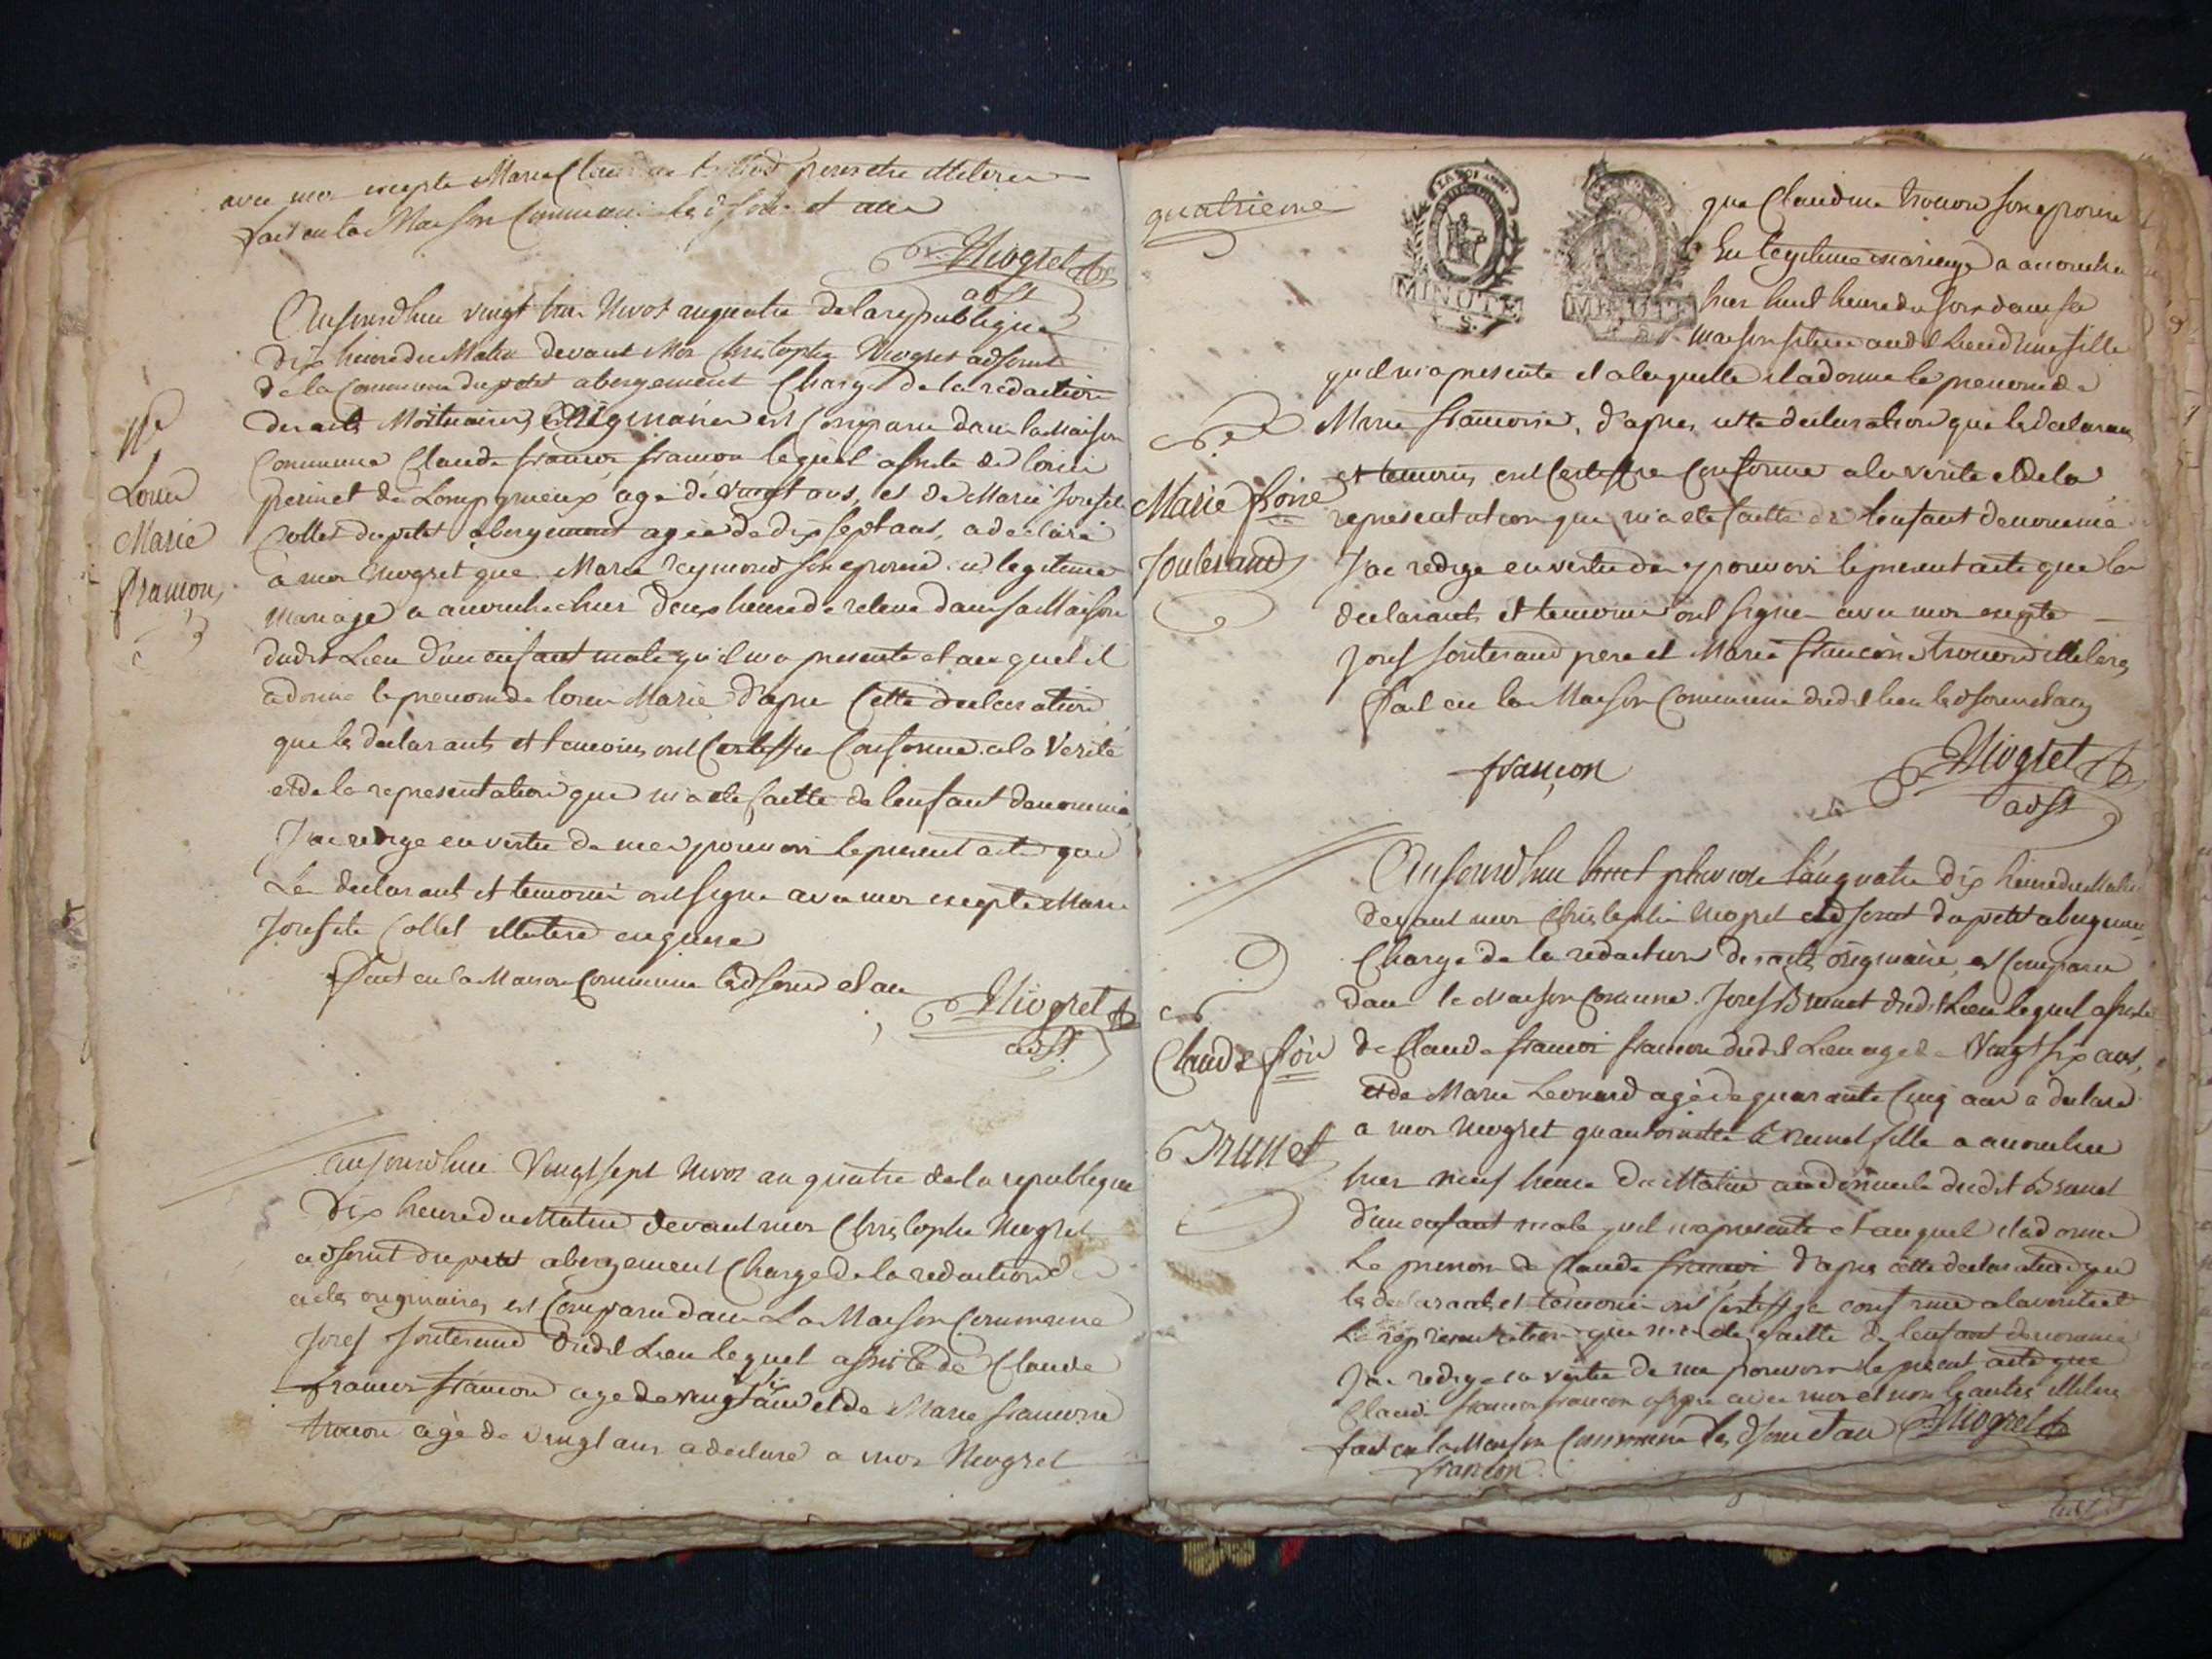 avec moi excepte Marie Claudine pour etre illiteree
fait en la Maison Commune les d jour et an
Niogret
adjt
Aujourdhui vingt Nivos an quatre de la republique
dix heure du Matin devant Moi Christophe Niogret adjoint
de la Commune du petit abergement Charge de la redaction
des acts Mortuaires et Originaires est Comparu dans la Maison
Commune Claude francois francon lequel assiste de lorin
perinet de Lompgnieux agé de vingt ans, et de Marie Josefte
Collet du petit abergement agée de dix sept ans, a declaré
à moi Niogret que Marie Reymond son epouse en legitime
Mariage a accouche hier deux heure de releve dans sa Maison
dudit Lieu d'un enfant male qu'il m'a presente et au quel il
a donne le prenom de lorin Marie d'apre Cette declaration
que les declarants et temoins ont Certiffie Conforme a la Verité
et de la representation que m'a ete faitte de lenfant denommé
J'ai redige en vertu de mes pouvoir le present acte que
Le declarant et temoin ont signe avec moi excepte Marie
Josefte Collet illitere enquise
fait en la Maison Commune les d jour et an
Niogret
adjt
Nce
Lorin
Marie
francon
aujourdhui Vingt sept Nivos an quatre de la republique
dix heure du Matin devant moi Christophe Niogret
adjoint du petit abergement Charge de la redaction des
actes originaires est Comparu dans La Maison Commune
Josef Jouterand dudit Lieu lequel assisté de Claude
francois francon age de vingt six ans et de Marie francoise
trocon agé de vingt ans a declaré a moi Niogret
quatrieme
MINUTE
MINUTE
que Claudine trocon son epouse
En legitime mariage a accouche
hier huit heure du soir dans sa
maison situee audit Lieu d'une fille
quil m'a presente et a laquelle il a donne le prenom de
Marie francoise, d'apres cette declaration que les declarans
et temoins ont Certiffie Conforme a la verite et de la
representation que m'a ete faitte de lenfant denommé
J'ai redige en vertu des pouvoirs le present acte que les
declarants et temoins ont signe avec moi excepte
Josef Jouterand pere et Marie francoise trocon illiteres
fait en la Maison Commune dudit lieu les d jour et an
françon
Niogret
adjt
Marie froise
Jouterand
Aujourdhui huit pluviose l'an quatre dix heure du Matin
devant moi Christophe Niogret adjoint du petit abergement
Charge de la redaction des acts originaire, est Comparu
dans la Maison Comune Josef Brunet dudit Lieu lequel assisté
de Claude francois francon dudit Lieu age de Vingt six ans,
et de Marie Leonard agée de quarante Cinq ans a declaré
a moi Niogret qu'antoinette Brunet fille a accouchee
hier neuf heure du Matin au domicile dudit Brunet
d'un enfant male quil m'a presente et auquel il a donne
Le prenom de Claude francois d'apres cette declaration que
les declarants et temoins ont Certiffie conforme a la verite et
La representation que m'a ete faitte de lenfant denommé
J'ai redige en vertu de mes pouvoir le present acte que
Claude francois francon a signe avec moi et non les autres illiteres
fait en la Maison Commune les d jour et an Niogret
francon
Claude fois
Brunet